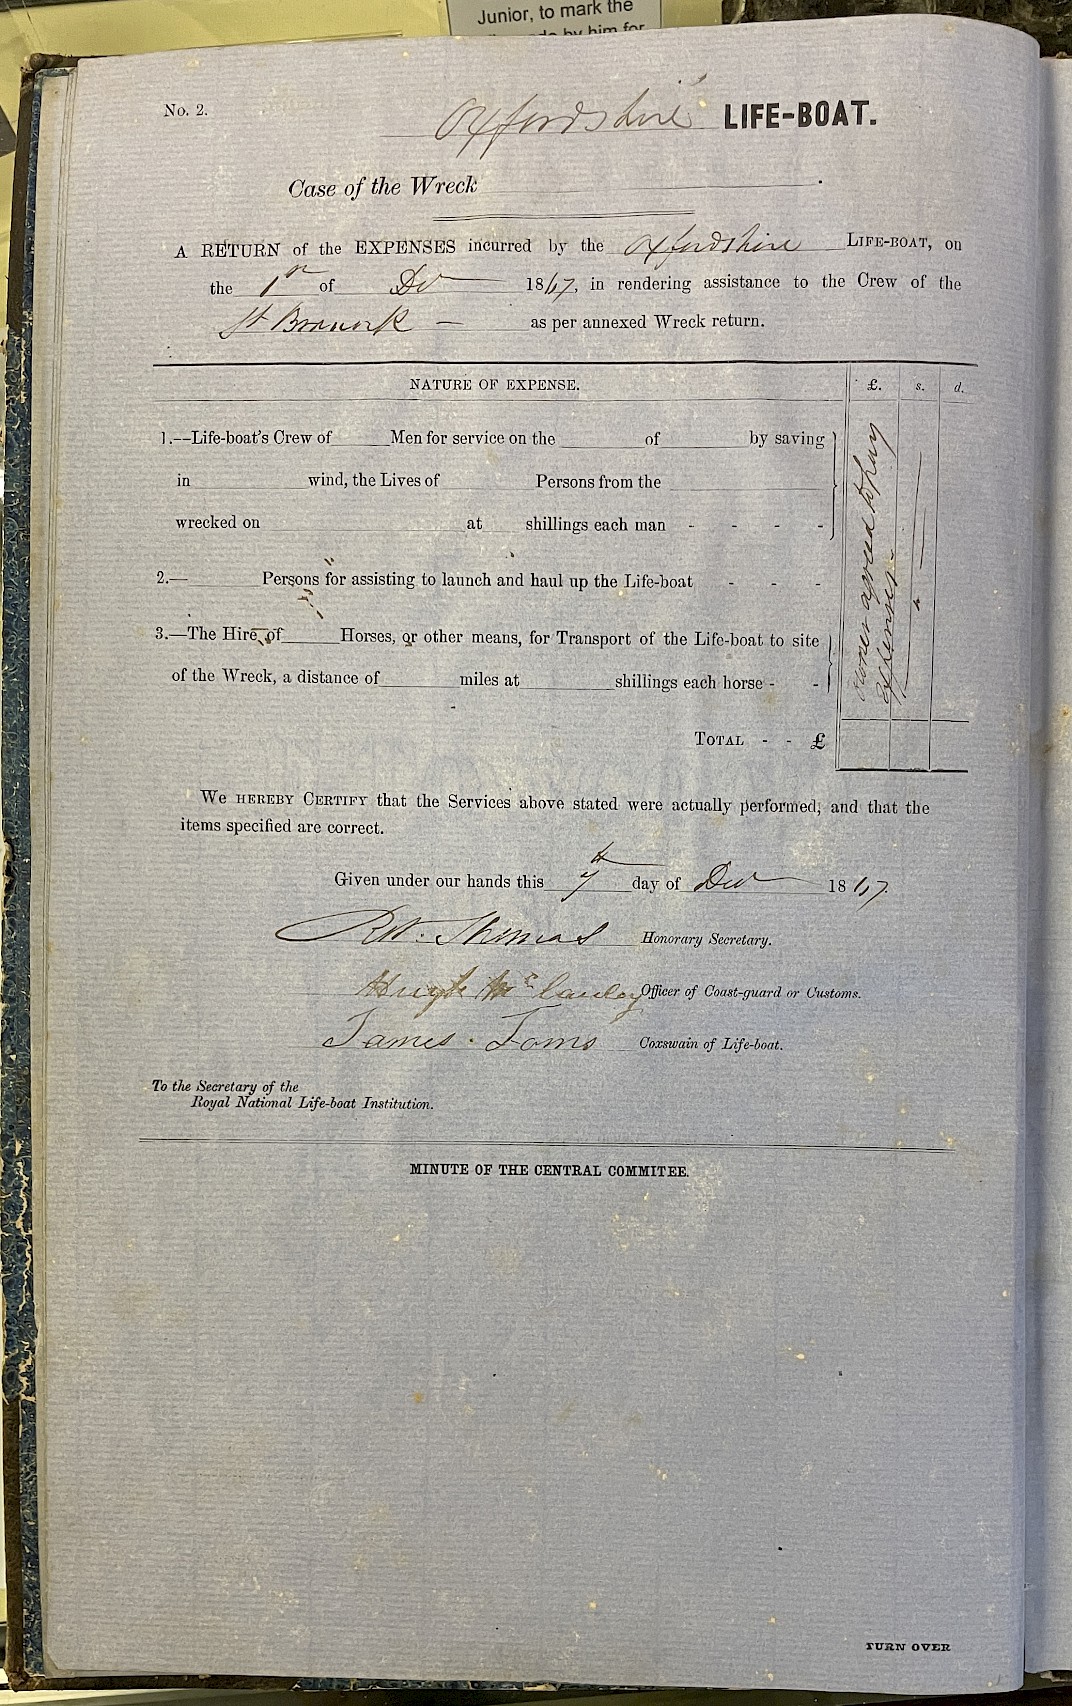 Junior, to mark the
by him for
No. 2.
"Oxfordshire" LIFE-BOAT.
Case of the Wreck .
A RETURN of the EXPENSES incurred by the Oxfordshire LIFE-BOAT, on
the 1st of Dec 1867, in rendering assistance to the Crew of the
St Brannock — as per annexed Wreck return.
NATURE OF EXPENSE. £. s. d.
1.—Life-boat's Crew of Men for service on the of by saving
in wind, the Lives of Persons from the
wrecked on at shillings each man - - - -
2.— Persons for assisting to launch and haul up the Life-boat - - -
3.—The Hire of Horses, or other means, for Transport of the Life-boat to site
of the Wreck, a distance of miles at shillings each horse - -
agreed to pay
expenses -
TOTAL - - £
We HEREBY CERTIFY that the Services above stated were actually performed, and that the
items specified are correct.
Given under our hands this 7th day of Dec 1867.
R W. Thomas Honorary Secretary.
Hugh McCauley Officer of Coast-guard or Customs.
James Toms Coxswain of Life-boat.
To the Secretary of the
Royal National Life-boat Institution.
MINUTE OF THE CENTRAL COMMITEE.
TURN OVER